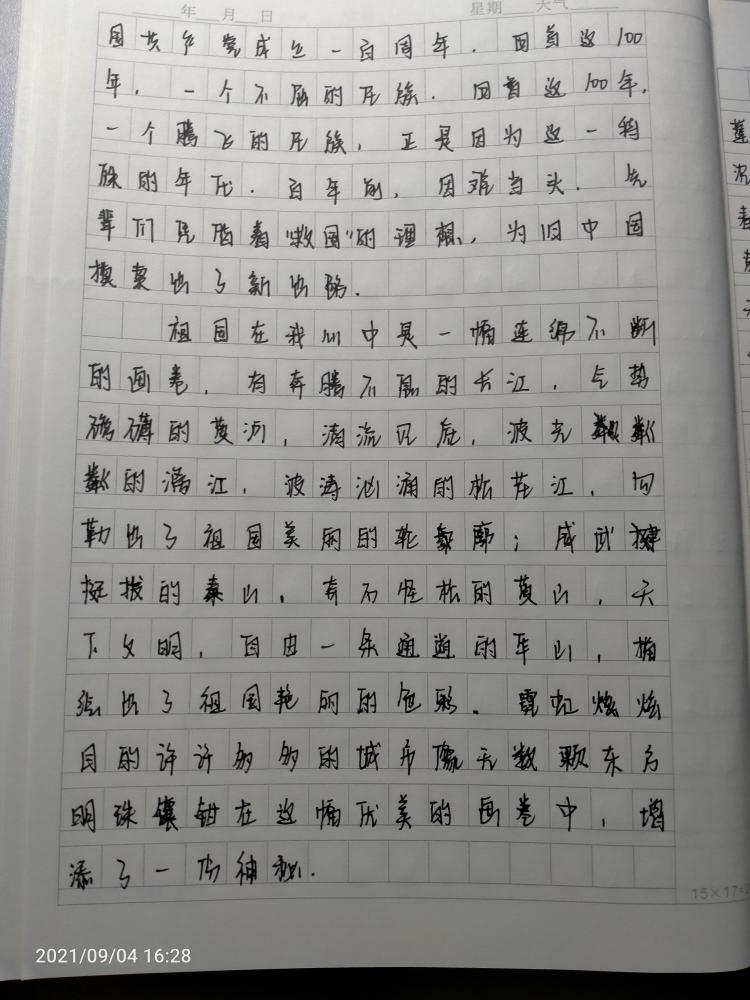 年 月 日 星期 天气
国共产党成立一百周年.回首这100
年,一个不屈的民族.回首这100年,
一个腾飞的民族,正是因为这一特
殊的年代.百年前,困难当头.先
辈们凭借着“救国”的理想,为旧中国
摸索出了新出路.
祖国在我心中是一幅连绵不断
的画卷,有奔腾不息的长江,气势
磅礴的黄河,清流见底,波光粼
粼的漓江,波涛汹涌的松花江,勾
勒出了祖国美丽的轮廓;威武
挺拔的泰山,奇石怪松的黄山,天
下文明,自由一条通道的华山,描
绘出了祖国艳丽的色彩.霓虹炫
目的许许多多的城市像无数颗东方
明珠镶钳在这幅优美的画卷中,增
添了一份神秘.
15×17=2
2021/09/04 16:28